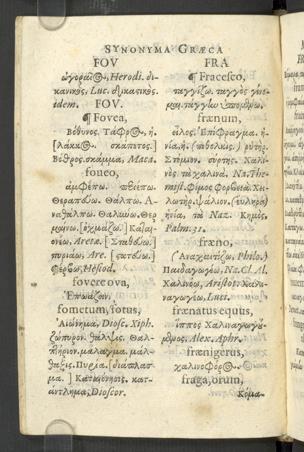 SYNONYMA GRÆCA
FOV
ὠγοραῖ☉, Herodi. δι-
κανικὸς, Luc. δικασικὸς.
idem. FOV.
¶ Fovea,
Βόθυνος. Τάφρ☉, ἡ.
[λάκκ☉. σκάπετος.
Βόθρος. σκάμμα, Maca.
foueo,
ἀμφέπω.
Θεραπεύω. Θάλπω. Α-
ναθάλπω. Θαλπιάω. Θερ
μαίνω. [ὀχμάζω.]
Areta. [
Are.
Hesiod.
fovere ova,
Ἐπωάζειν.
fomentum, fotus,
Αἰώνημα, Diosc. Xiph.
ζώπυρον. θάλψις. Θαλ-
πτήριον. μάλαγμα. μάλ-
θαξις. Πυρία. [διάπλασ-
μα.] Καταιόνησις. κατ-
άντλημα, Dioscor.
FRA
¶ Fracesco,
ταγγίζω. ταγγὸς γίνο-
μαι.
frænum,
εἷλος. Ἐπίφραγμα. ἡ-
νία, ἡ. ῥυτὴρ.
Στόμιον. Χαλι-
νὸς τὰ χαλινὰ. Na. The-
mist. Φιμὸς φορβειὰ Κη-
ψάλιον.
ἡνία, τὰ Naz. Κημὸς,
Palm. 31.
fræno,
(Ἀναχαιτίζω, Philo.)
Παιδαγωγέω, Na. Cl. Al.
Χαλινόω, Aristot. Χαλι-
ναγωγέω, Luci.
frænatus equus,
ἵππος Χαλιναγωγού-
μενος. Alex. Aphr.
frænigerus,
χαλινοφόρ☉.
fraga, orum,
Κόμα-